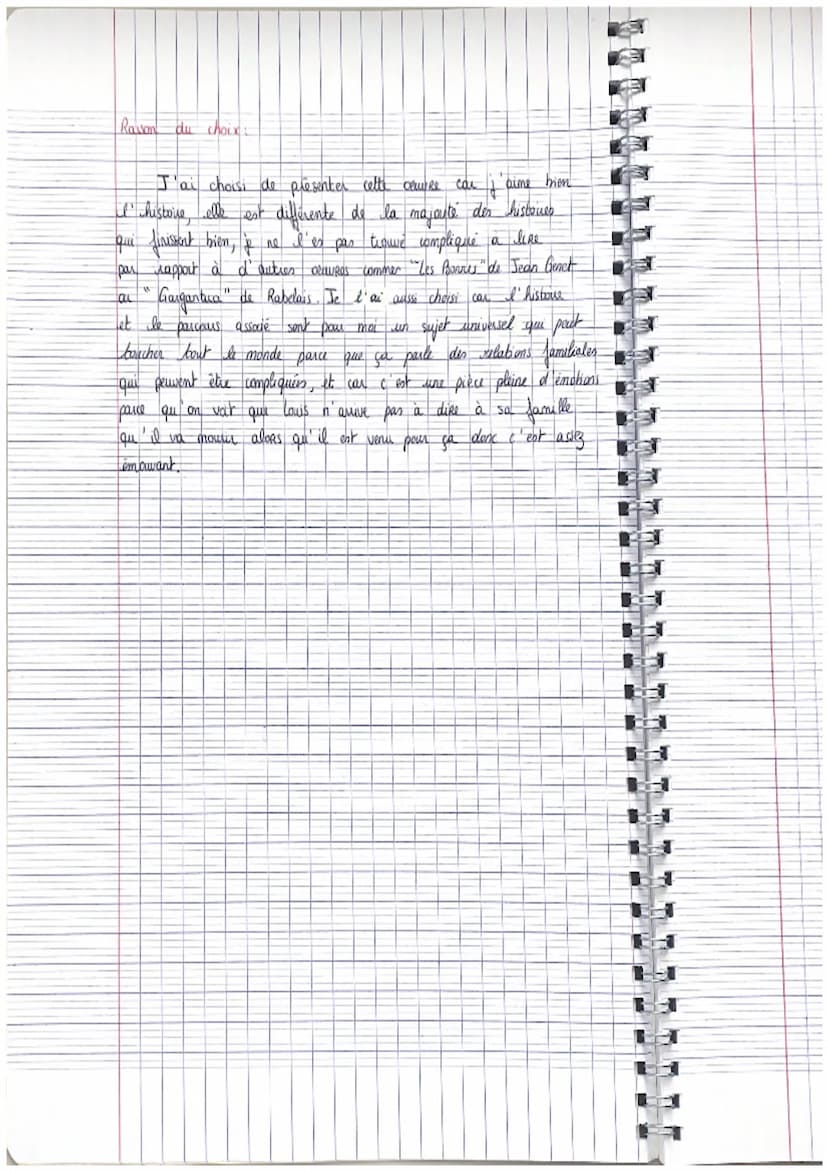 Raison du choix :
J'ai choisi de présenter cette oeuvre car j'aime bien
l'histoire, elle est différente de la majorité des histoires
qui finissent bien, je ne l'es pas trouvé compliqué a lire
par rapport à d'autres oeuvres commes "Les Bonnes" de Jean Genet
ou "Gargantua" de Rabelais. Je l'ai aussi choisi car l'histoire
et le parcours associé sont pour moi un sujet universel qui peut
toucher tout le monde parce que ça parle des relations familiales
qui peuvent être compliquées, et car c'est une pièce pleine d'émotions
parce qu'on voit que Louis n'arrive pas à dire à sa famille
qu'il va mourir alors qu'il est venu pour ça donc c'est assez
émouvant.